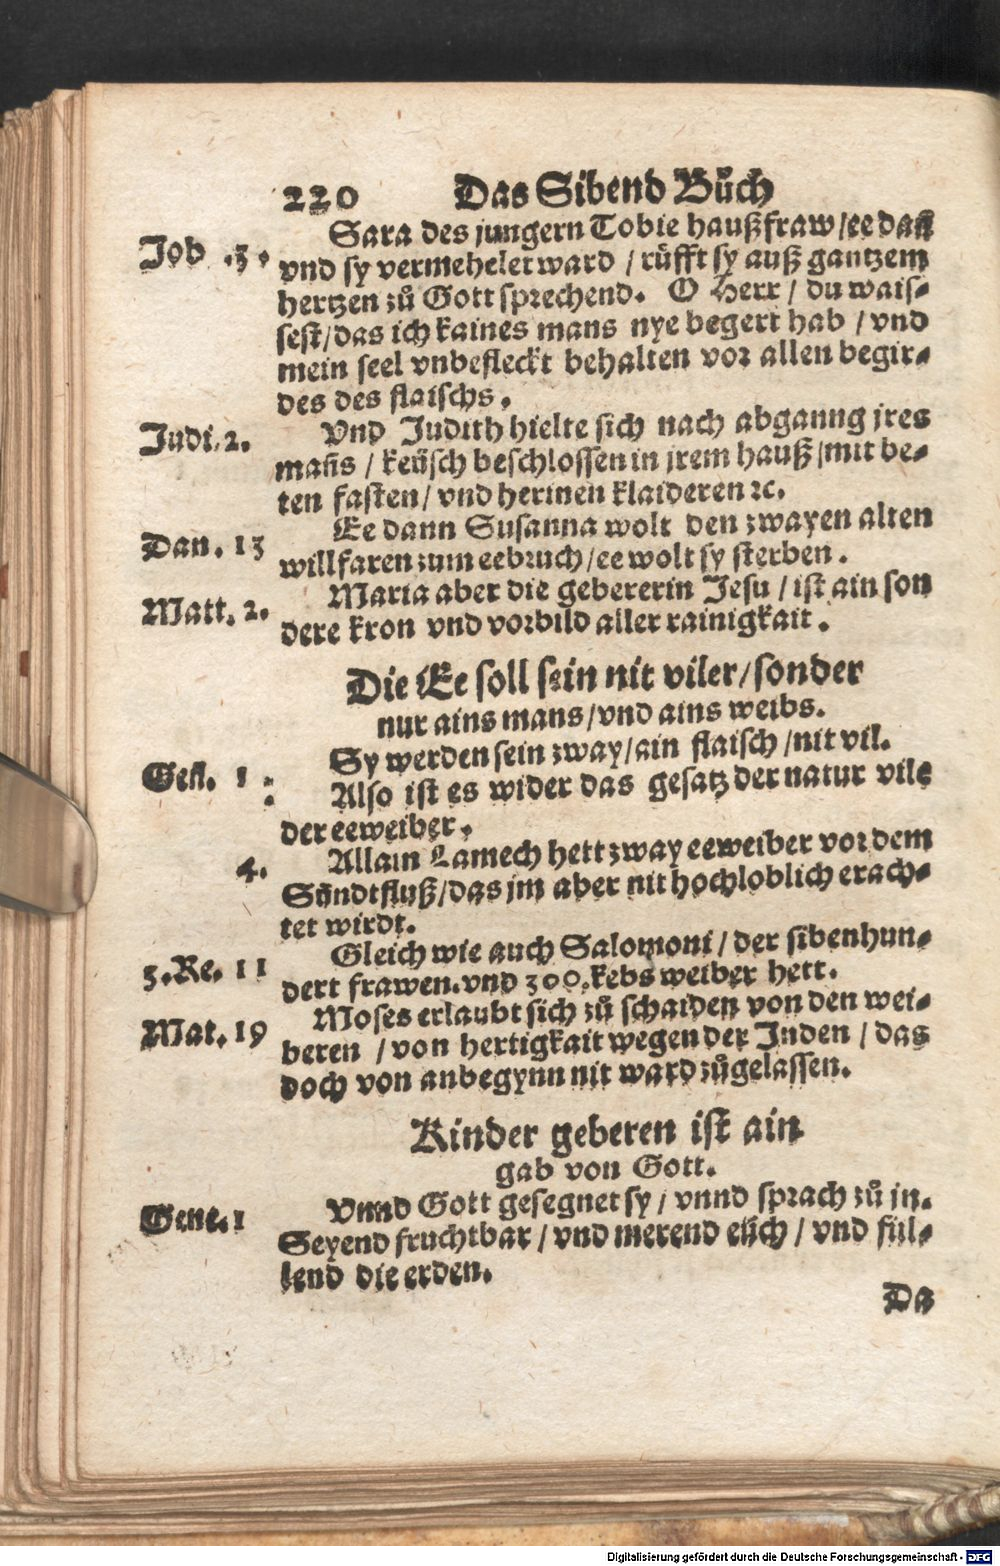 220 Das Sibend Bůch
Sara des jungern Tobie haußfraw/ee dañ
Job .3. vnd sy vermehelet ward / růfft sy auß gantzem
hertzen zů Gott sprechend. O Herr / du wais-
sest/das ich kaines mans nye begert hab / vnd
mein seel vnbefleckt behalten vor allen begir-
des des flaischs.
Judi.2. Vnd Judith hielte sich nach abganng jres
mañs / keüsch beschlossen in jrem hauß/mit be-
ten fasten/ vnd herinen klaideren ꝛc.
Ee dann Susanna wolt den zwayen alten
Dan. 13 willfaren zum eebruch/ee wolt sy sterben.
Maria aber die gebererin Jesu / ist ain son
Matt. 2. dere kron vnd vorbild aller rainigkait.
Die Ee soll sein nit viler/sonder
nur ains mans/vnd ains weibs.
Sy werden sein zway/ain flaisch /nit vil.
Gen. 1 : Also ist es wider das gesatz der natur vile
der eeweiber.
4. Allain Lamech hett zway eeweiber vor dem
Sündtfluß/das jm aber nit hochloblich erach-
tet wirdt.
Gleich wie auch Salomoni/ der sibenhun-
3.Re. 11 dert frawen.vnd 300.kebs weiber hett.
Moses erlaubt sich zů schaiden von den wei-
Mat. 19 beren /von hertigkait wegen der Juden / das
doch von anbegynn nit ward zůgelassen.
Kinder geberen ist ain
gab von Gott.
Gene.1 Vnnd Gott gesegnet sy / vnnd sprach zů jn.
Seyend fruchtbar / vnd merend eüch / vnd fül-
lend die erden.
Da
Digitalisierung gefördert durch die Deutsche Forschungsgemeinschaft - DFG